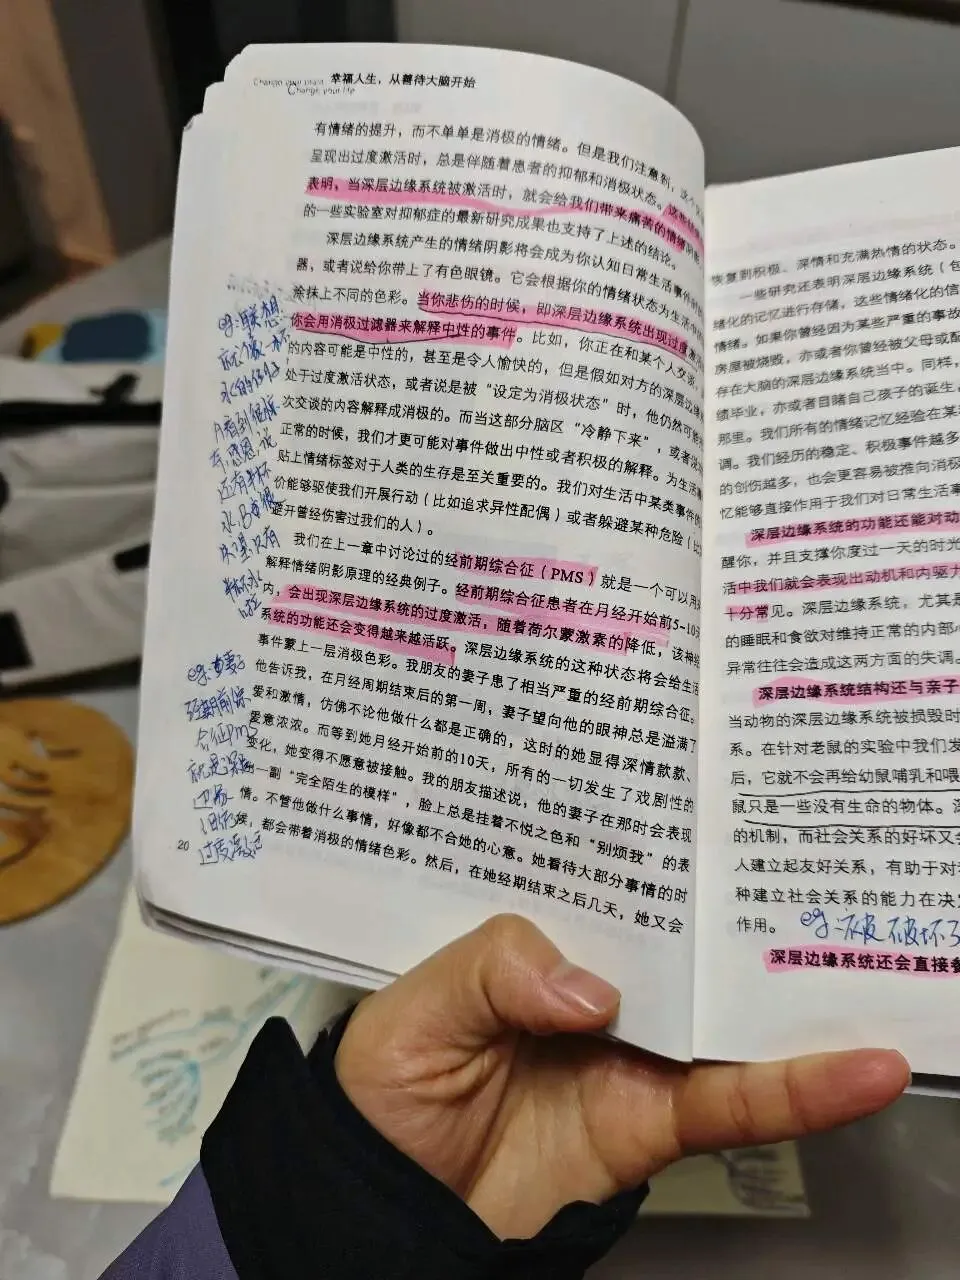 Change your brain
Change your life
幸福人生，从善待大脑开始
有情绪的提升，而不单单是消极的情绪。但是我们注意到，
呈现出过度激活时，总是伴随着患者的抑郁和消极状态。这些
表明，当深层边缘系统被激活时，就会给我们带来痛苦的情绪
的一些实验室对抑郁症的最新研究成果也支持了上述的结论。
深层边缘系统产生的情绪阴影将会成为你认知日常生活事件
器，或者说给你带上了有色眼镜。它会根据你的情绪状态为生活中
涂抹上不同的色彩。当你悲伤的时候，即深层边缘系统出现过度
你会用消极过滤器来解释中性的事件。比如，你正在和某个人交谈，
的内容可能是中性的，甚至是令人愉快的，但是假如对方的深层边缘
处于过度激活状态，或者说是被“设定为消极状态”时，他仍然可能
次交谈的内容解释成消极的。而当这部分脑区“冷静下来”，或者说
正常的时候，我们才更可能对事件做出中性或者积极的解释。为生活
贴上情绪标签对于人类的生存是至关重要的。我们对生活中某类事件的
价能够驱使我们开展行动（比如追求异性配偶）或者躲避某种危险（比
避开曾经伤害过我们的人）。
我们在上一章中讨论过的经前期综合征（PMS）就是一个可以用
解释情绪阴影原理的经典例子。经前期综合征患者在月经开始前5~10天
内，会出现深层边缘系统的过度激活，随着荷尔蒙激素的降低，该神经
系统的功能还会变得越来越活跃。深层边缘系统的这种状态将会给生活
事件蒙上一层消极色彩。我朋友的妻子患了相当严重的经前期综合征。
他告诉我，在月经周期结束后的第一周，妻子望向他的眼神总是溢满了
爱和激情，仿佛不论他做什么都是正确的，这时的她显得深情款款、
爱意浓浓。而等到她月经开始前的10天，所有的一切发生了戏剧性的
变化，她变得不愿意被接触。我的朋友描述说，他的妻子在那时会表现
一副“完全陌生的模样”，脸上总是挂着不悦之色和“别烦我”的表
情。不管他做什么事情，好像都不合她的心意。她看待大部分事情的时
候，都会带着消极的情绪色彩。然后，在她经期结束之后几天，她又会
20
eg:联想
就像一杯
水的例子
A看到很悲
还有半杯
水B
只有
半杯水
eg:
经期前综
合征PMS
就是深层
边缘
过度激活
恢复到积极、深情和充满热情的状态。
一些研究还表明深层边缘系统（包
绪化的记忆进行存储，这些情绪化的信
情绪。如果你曾经因为某些严重的事故
房屋被烧毁，亦或者你曾经被父母或配
存在大脑的深层边缘系统当中。同样，
绩毕业，亦或者目睹自己孩子的诞生，
那里。我们所有的情绪记忆经验在某
调。我们经历的稳定、积极事件越多
的创伤越多，也会更容易被推向消极
忆能够直接作用于我们对日常生活事
深层边缘系统的功能还能对动
醒你，并且支撑你度过一天的时光
活中我们就会表现出动机和内驱力
十分常见。深层边缘系统，尤其是
的睡眠和食欲对维持正常的内部
异常往往会造成这两方面的失调。
深层边缘系统结构还与亲子
当动物的深层边缘系统被损毁时
系。在针对老鼠的实验中我们发
后，它就不会再给幼鼠哺乳和喂
鼠只是一些没有生命的物体。深
的机制，而社会关系的好坏又会
人建立起友好关系，有助于对
种建立社会关系的能力在决定
作用。
eg:一被破坏了
深层边缘系统还会直接参